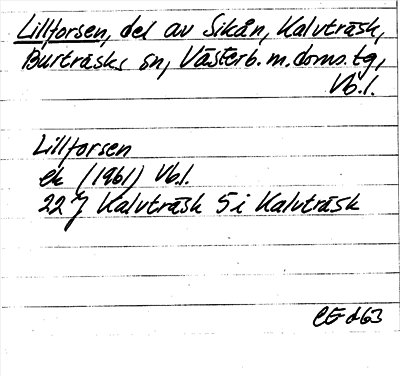 Lillforsen, del av Sikån, Kalvträsk,
Burträsks sn, Västerb. m. doms. tg,
Vb.l.
Lillforsen
ek (1961) Vb.l.
22 J Kalvträsk 5i Kalvträsk
CE d63